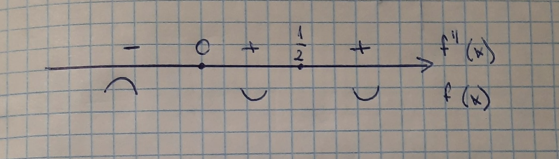 − 0 + 1/2 + f''(x)
f(x)